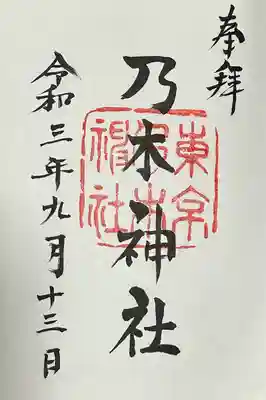 奉拝
乃木神社
令和三年九月十三日
東京
乃木
神社